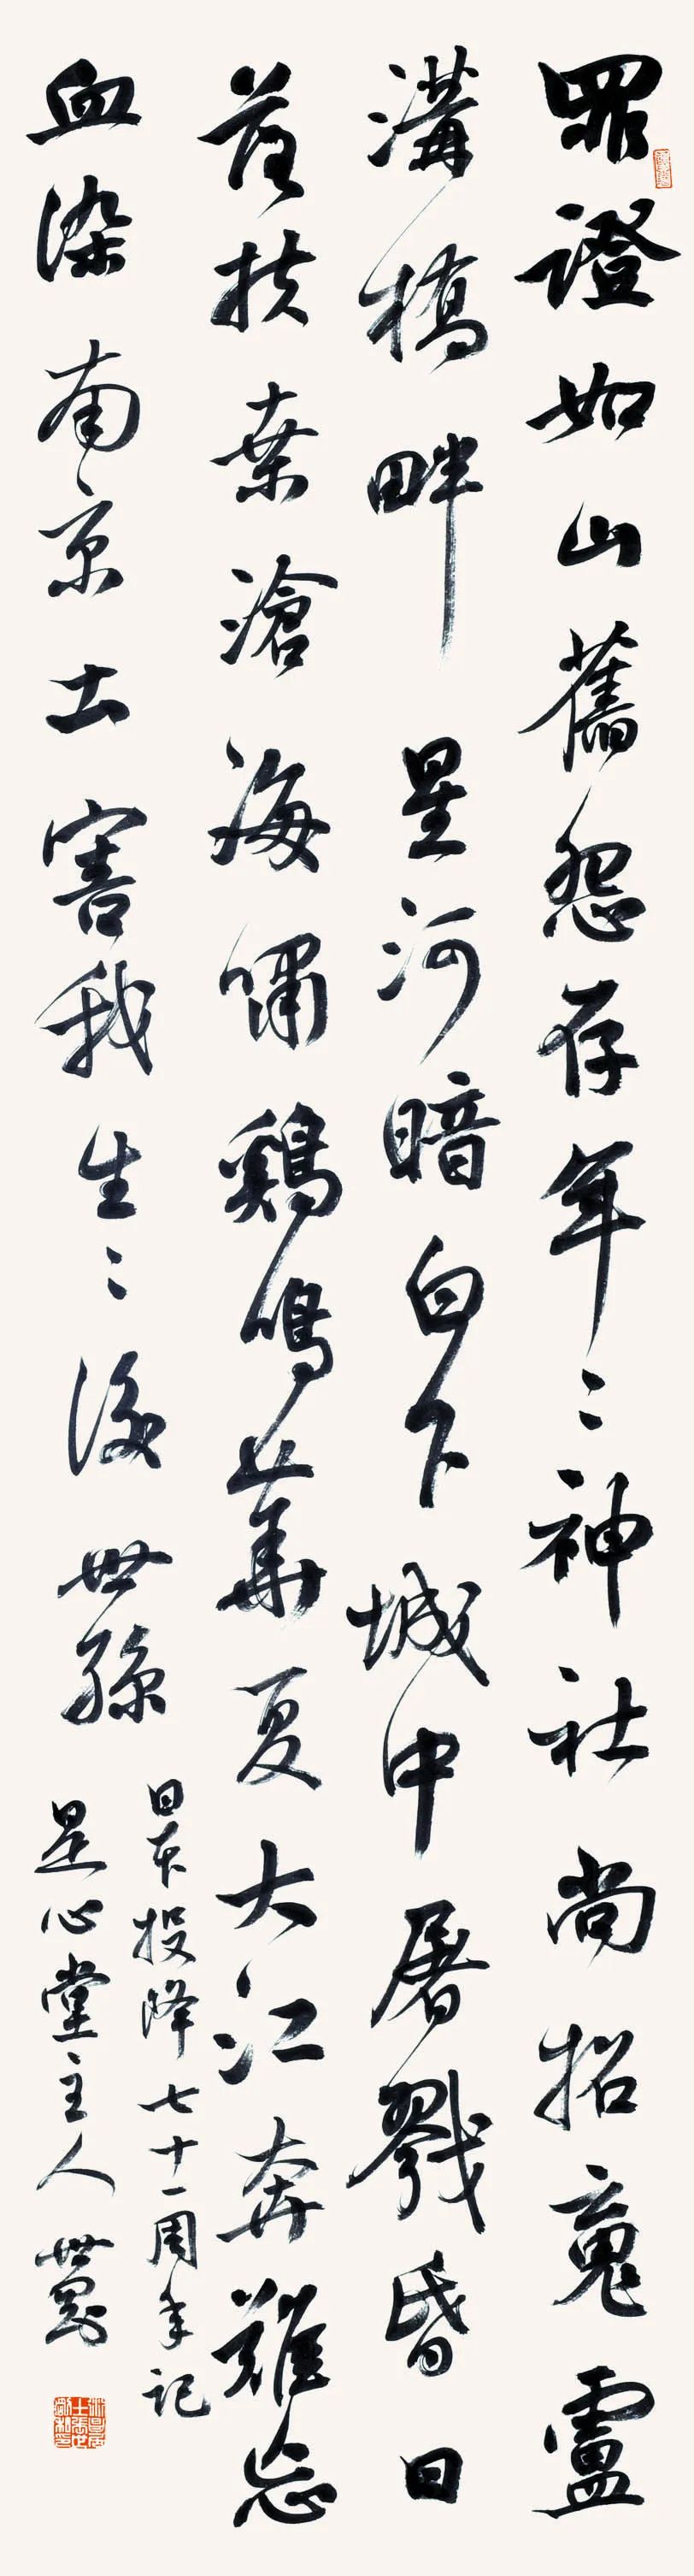 罪證如山舊怨存年〻神社尚招䰟盧
溝橋畔星河暗白下城中屠戮昏日
落扶桒滄海嘯鷄鳴華夏大江奔難忘
血染南京土害我生〻後世孫
日本投降七十一周年記
是心堂主人世勛